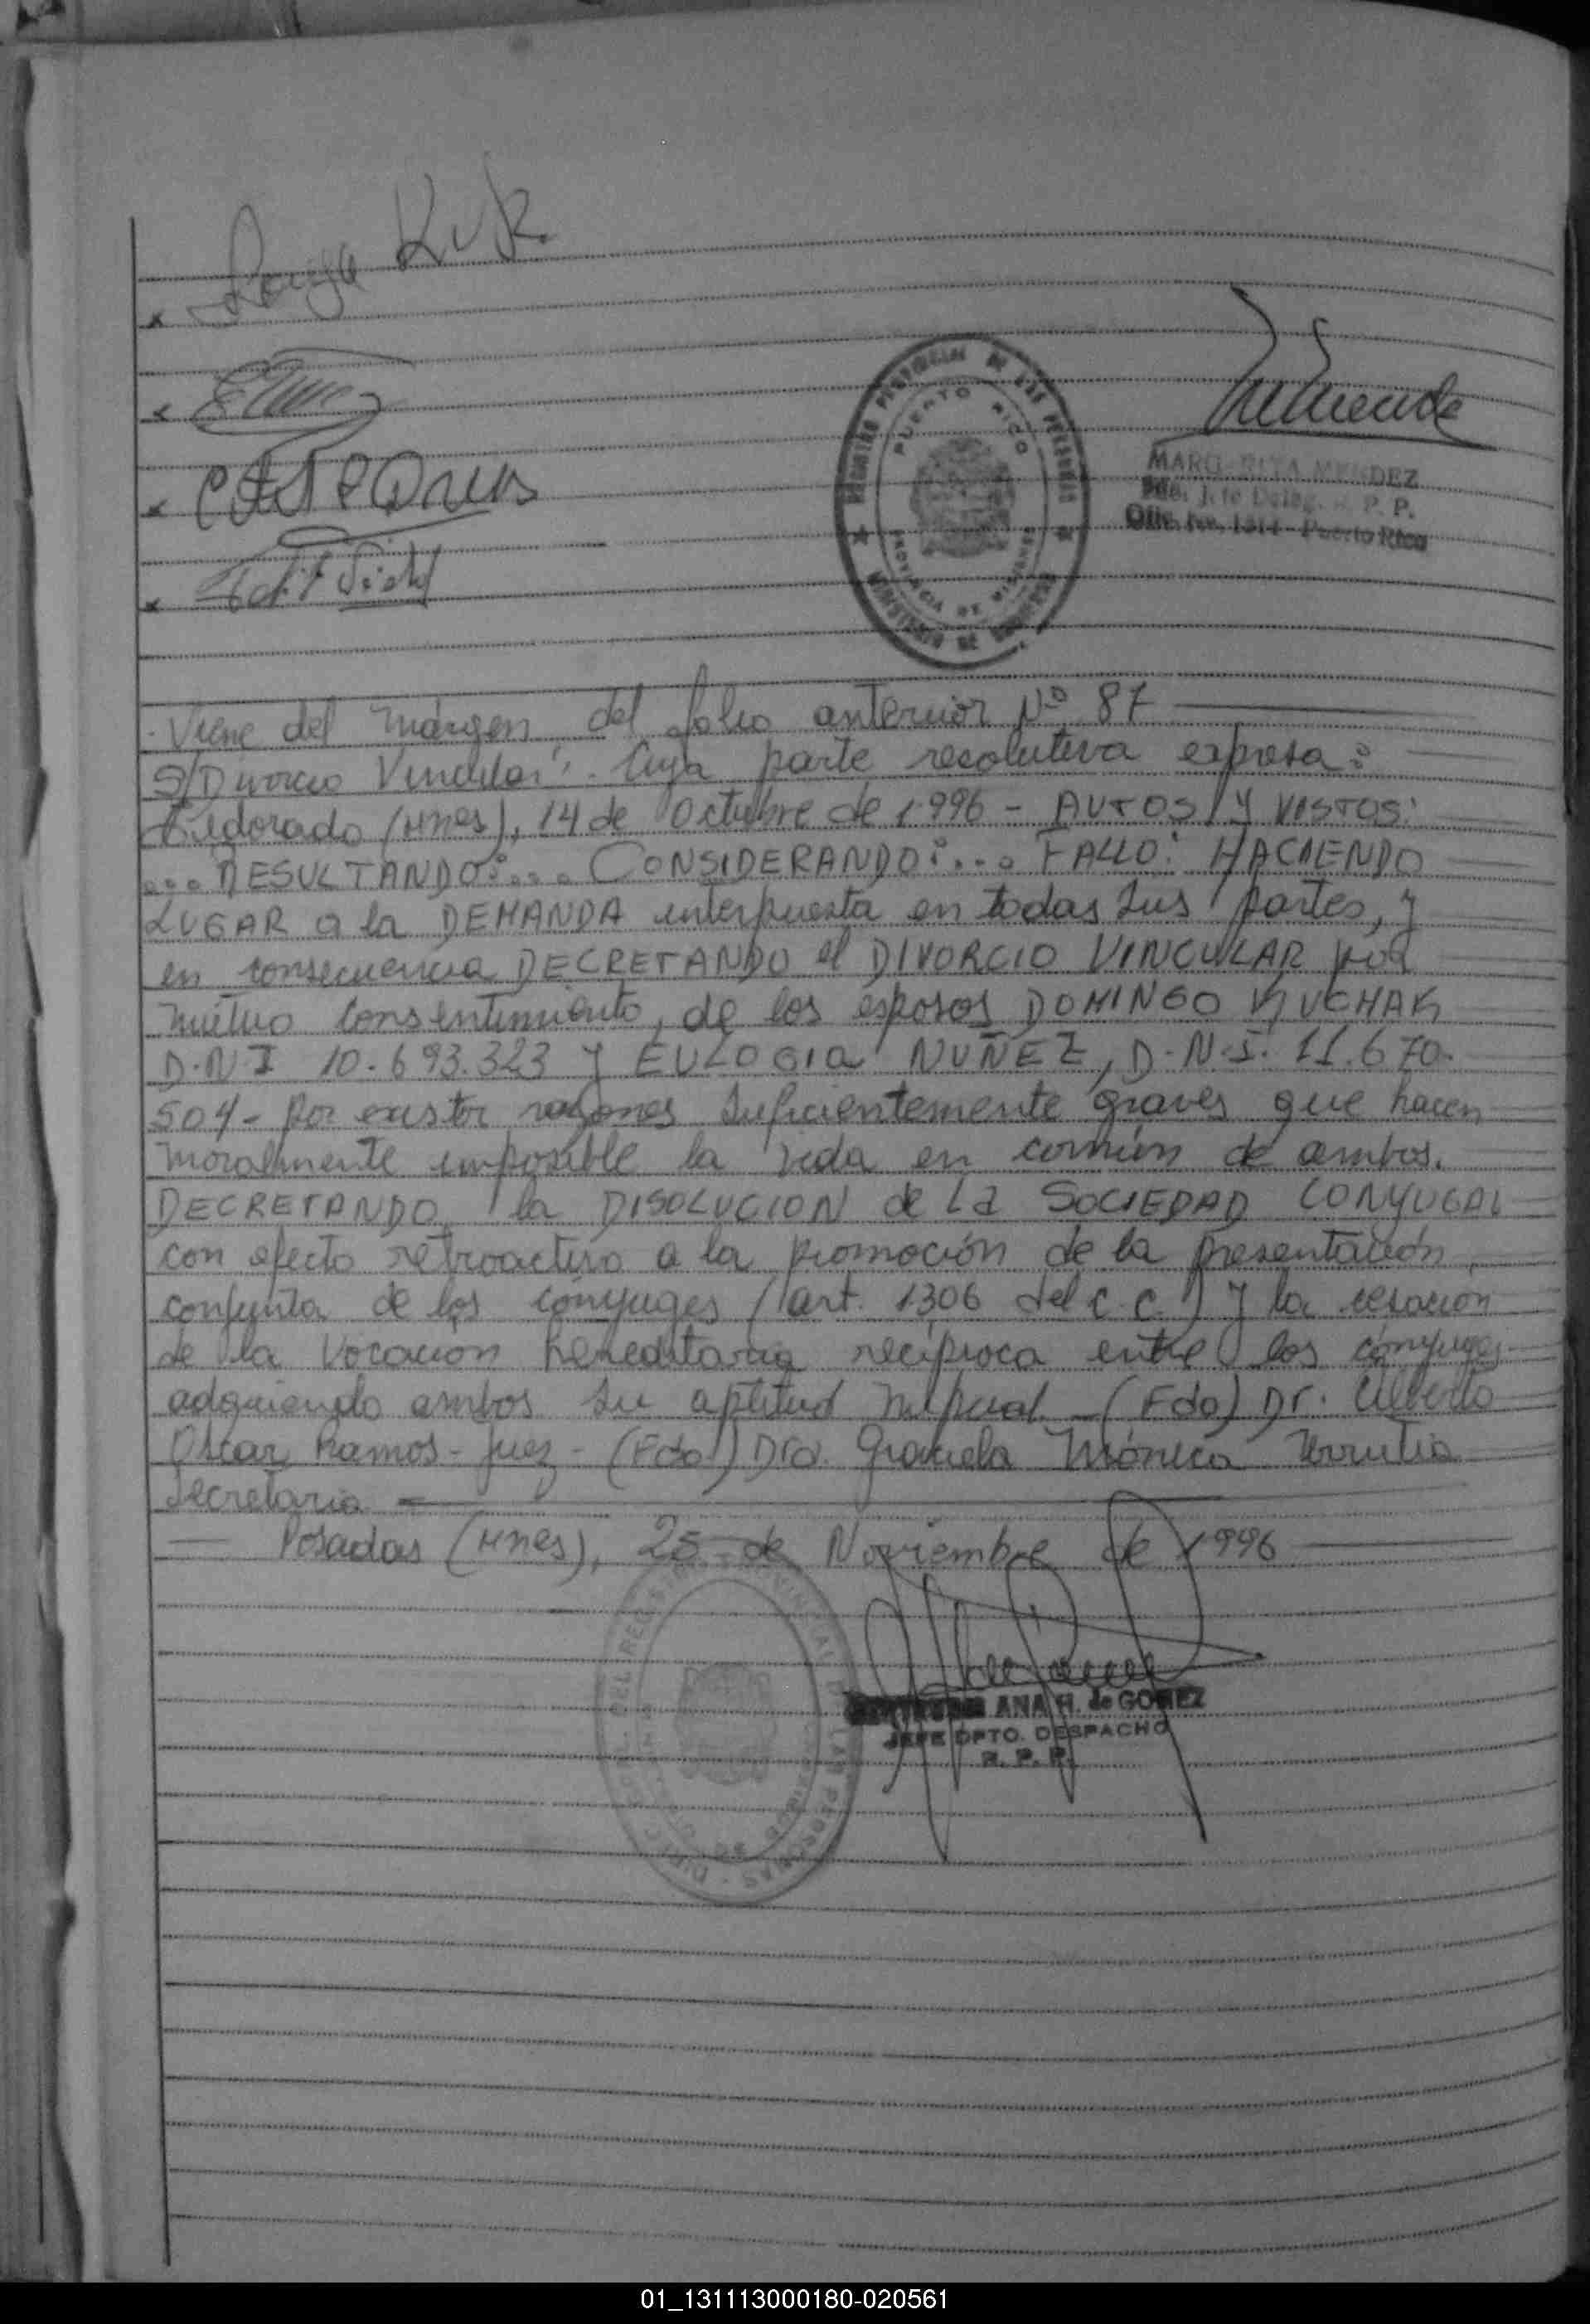 KUR
REGISTRO PROVINCIAL DE LAS PERSONAS
PUERTO RICO
PROVINCIA DE MISIONES
MINISTERIO DE GOBIERNO
MARGARITA MENDEZ
P. P.
Puerto Rico
Viene del márgen del folio anterior Nº 87
S/Divorcio Vincular". Cuya parte resolutiva expresa:
Eldorado (Mnes), 14 de Octubre de 1996 - AUTOS Y VISTOS:
... RESULTANDO:... CONSIDERANDO:... FALLO: HACIENDO
LUGAR a la DEMANDA interpuesta en todas sus partes, y
en consecuencia DECRETANDO el DIVORCIO VINCULAR por
mútuo consentimiento, de los esposos DOMINGO KUCHAK
D.N.I 10.693.323 y EULOGIA NUÑEZ, D.N.I. 11.670.
504- por existir razones suficientemente graves que hacen
moralmente imposible la vida en común de ambos.
DECRETANDO la DISOLUCION de La SOCIEDAD CONYUGAL
con efecto retroactivo a la promoción de la presentación
conjunta de los cónyuges (art. 1306 del C.C.) y la cesación
de la vocación hereditaria recíproca entre los cónyuges
adquiriendo ambos su aptitud nupcial. - (Fdo) Dr. Alberto
Oscar Ramos - Juez - (Fdo) Dra. Graciela Mónica Urrutia
Secretaria
Posadas (Mnes), 25 de Noviembre de 1996
ANA H. de GOMEZ
JEFE DPTO. DESPACHO
R. P. P.
01_131113000180-020561